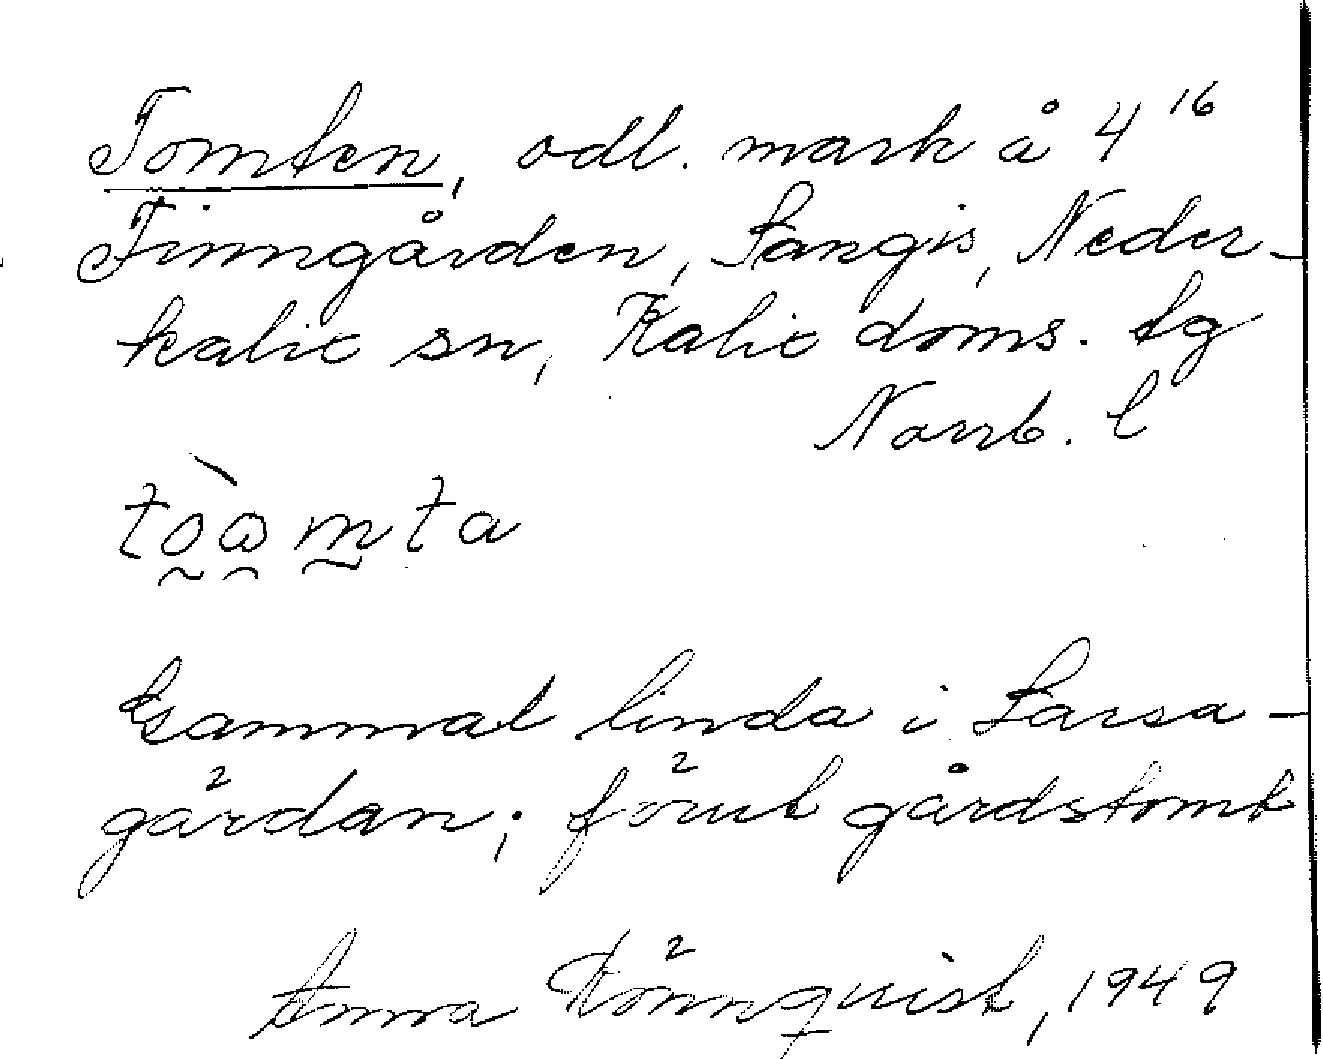 Tomten, odl. mark å 4¹⁶
Finngården, Sangis, Neder-
kalix sn, Kalix doms. tg
Norrb. l
tòamta
Gammal linda i Larsa-
gårdan; förut gårdstomt
Anna Rönnquist, 1949